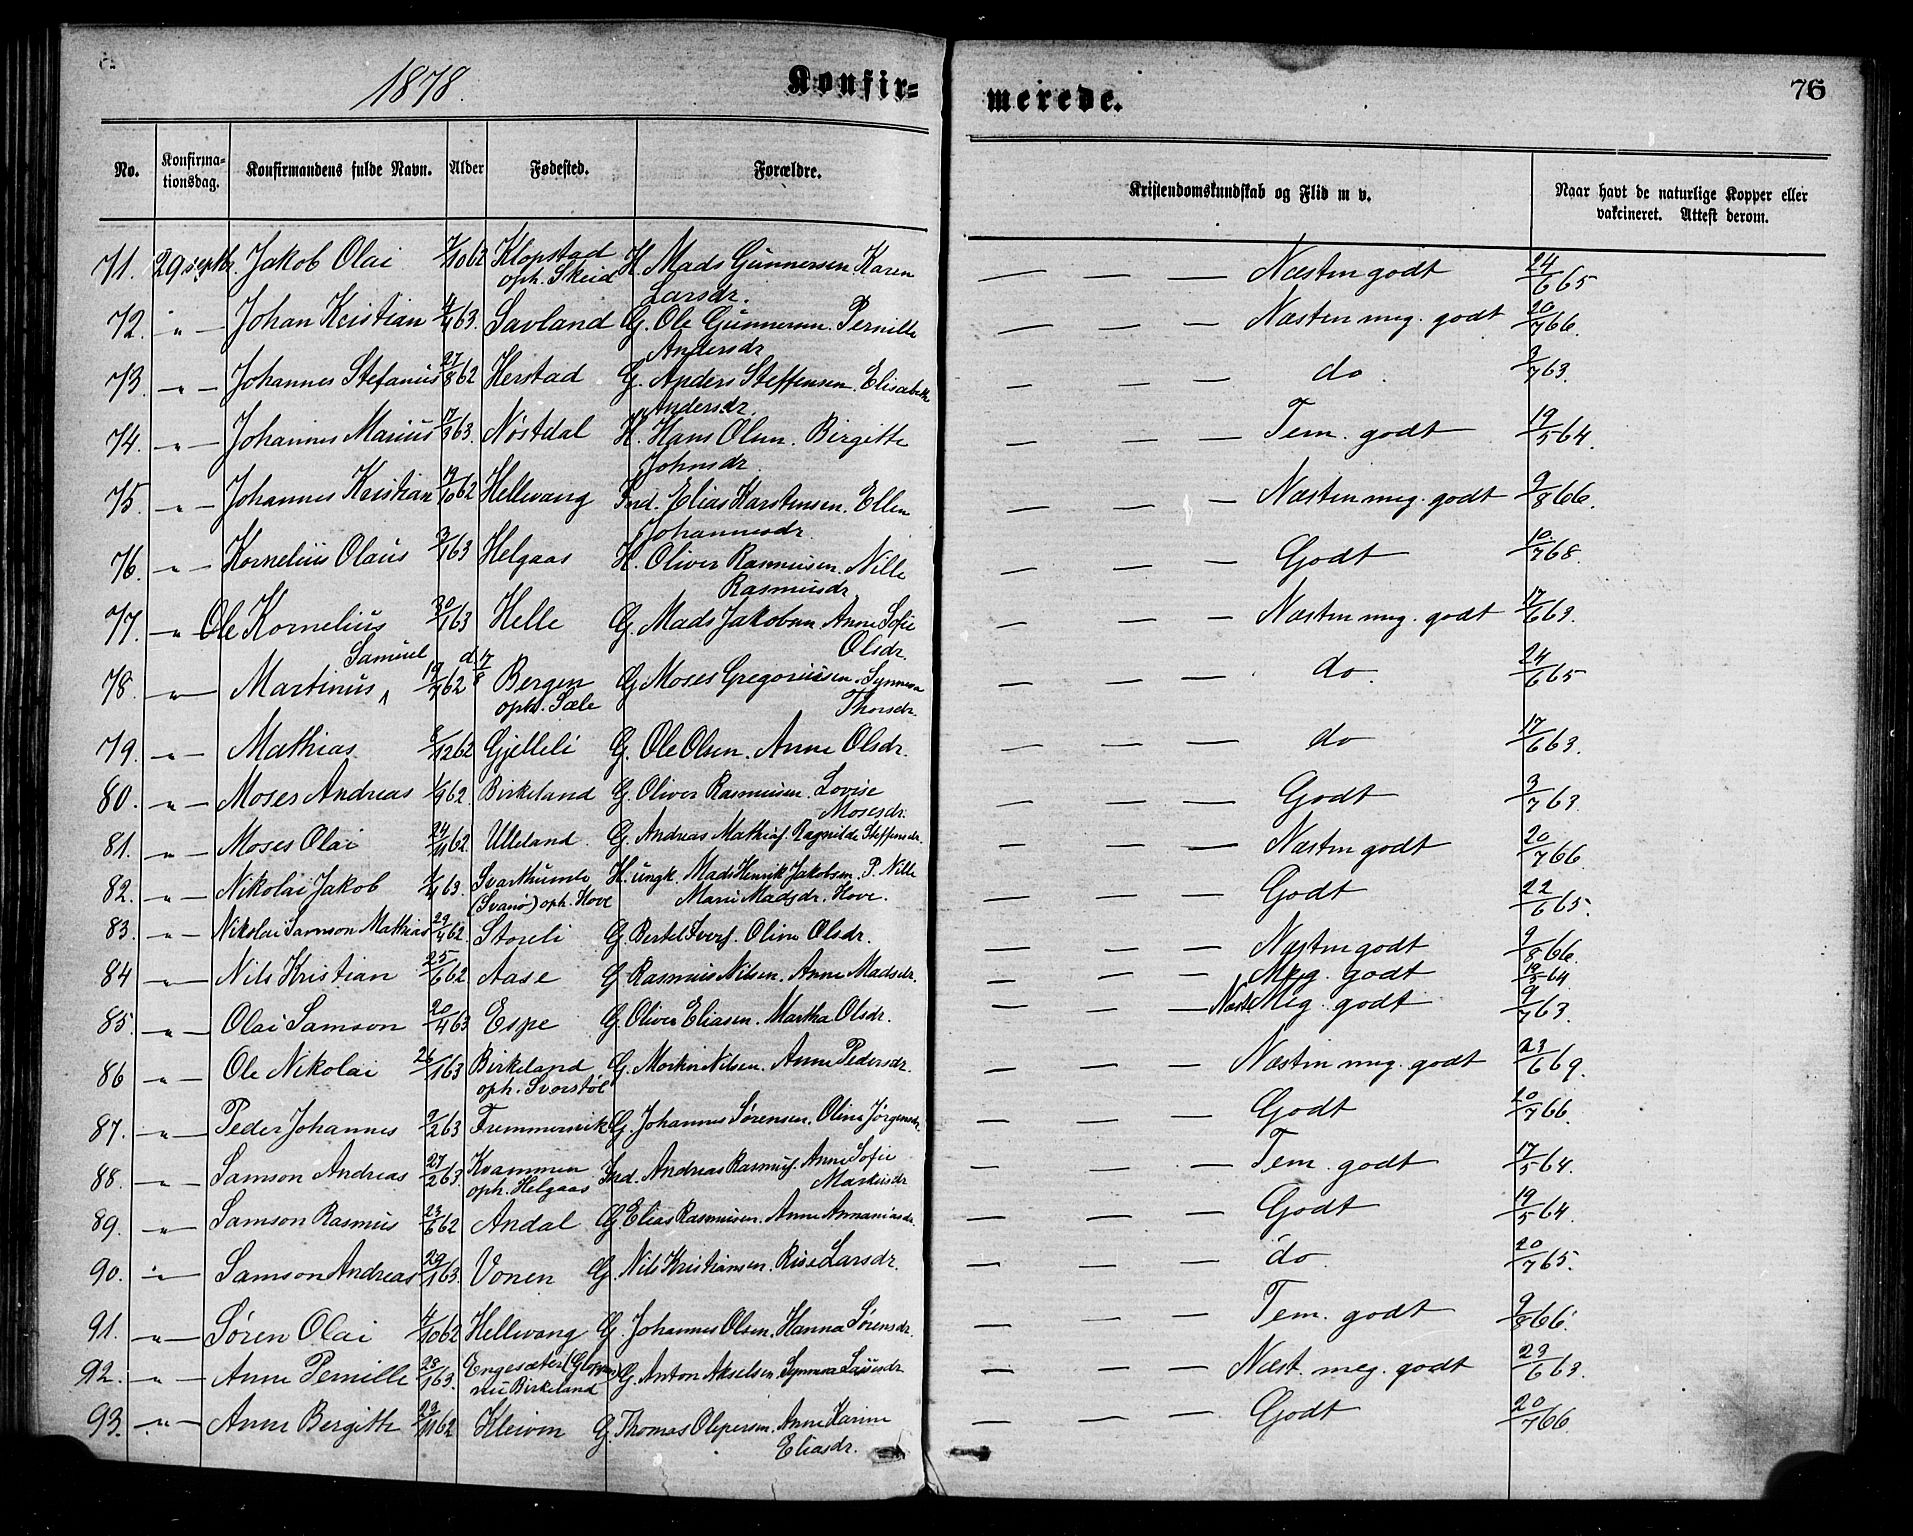 1878. Konfir= merede. 76
No. Konfirma-tionsdag. Konfirmandens fulde Navn. Alder Fødested. Forældre. Kristendomskundskab og Flid m v. Naar havt de naturlige Kopper eller vakcineret. Attest derom.
71. 29 septbr. Jakob Olai 7/10 62 Klopstad H. Mads Gunnersen Karen — — — Næsten godt 24/6 65
oph. Skeid Larsdr.
72. " — Johan Kristian 4/4 63. Savland G. Ole Gunnersen. Pernille — — — Næsten meg. godt 20/7 66.
Andersdr
73. " — Johannes Stefanus 27/8 62 Herstad G. Anders Steffensen. Elisabeth — — — do. 3/7 63.
Andersdr.
74. " — Johannes Marius 17/3 63. Nøstdal H. Hans Olsen. Birgitte — — — Tem. godt 19/5 64.
Johnsdr.
75. " — Johannes Kristian 19/10 62 Hellevang Ind. Elias Karstensen. Ellen — — — Næsten meg. godt 9/8 66.
Johannesdr.
76. " — Kornelius Olaus 3/1 63 Helgaas H. Oliver Rasmusen. Nille — — — Godt 10/7 68.
Rasmusdr
77. " Ole Kornelius 30/1 63 Helle G. Mads Jakobsen Anne Sofie — — — Næsten meg. godt 17/6 63.
Olsdr.
Samuel d. 17/8
78. " — Martinus 19/7 62 Bergen G Moses Gregoriusen. Synneva — — — do. 24/6 65
oph. Sæle Thorsdr.
79. " — Mathias 8/12 62 Gjelleli G. Ole Olsen. Anne Olsdr. — — — do 17/6 63.
80. " — Moses Andreas 1/9 62. Birkeland G. Oliver Rasmusen. Lovise — — — Godt 3/7 63.
Mosesdr.
81. " — Moses Olai 24/11 62 Ulleland. G. Andreas Mathias. Ragnilde Steffensdr. — — — Næsten godt 20/7 66.
82. " — Nikolai Jakob 7/4 63. Svarthumle H. ungk. Mads Henrik Jakobsen. P. Nille — — — Godt 22/6 65.
(Svanø) oph. Hove Marie Madsdr. Hove.
83. " — Nikolai Samson Mathias 29/4 62. Storeli G. Bertel Ivers. Oline Olsdr. — — — Næsten godt 9/8 66.
84 " — Nils Kristian 25/6 62 Aase G Rasmus Nilsen. Anne Madsdr. — — — Meg. godt 19/5 64
85. " — Olai Samson 20/4 63 Espe G. Oliver Eliasen. Martha Olsdr. — — — Næst Meg. godt 9/7 63.
86 " — Ole Nikolai 26/1 63 Birkeland G. Morten Nilsen. Anne Pedersdr. — — — Næsten meg. godt 23/6 69.
oph. Svorstøl
87. " — Peder Johannes 9/2 63 Fremmervik G. Johannes Sørensen. Olina Jørgensdr. — — — Godt 20/7 66.
88. " — Samson Andreas 27/2 63. Kvammen Ind. Andreas Rasmus. Anne Sofie — — — Tem. godt 17/5 64.
oph. Helgaas Markusdr
89. " — Samson Rasmus 23/6 62 Andal G Elias Rasmusen. Anne Annaniasdr. — — — Godt 19/5 64.
90. " — Samson Andreas 29/1 63. Vonen G. Nils Kristiansen. Rise Larsdr. — — — do. 20/7 65.
91. " — Søren Olai 4/10 62 Hellevang G. Johannes Olsen. Hanna Sørensdr. — — — Tem. godt 9/8 66.
92. " — Anne Pernille 23/1 63. Engesæter (Gloppen) G. Anton Akselsen. Synneva Larsdr — — — Næst. meg. godt 23/6 63.
nu Birkeland
93. " — Anne Bergitte 23/11 62 Kleiven G. Thomas Olepersen. Anne Karine — — — Godt 20/7 66.
Eliasdr.